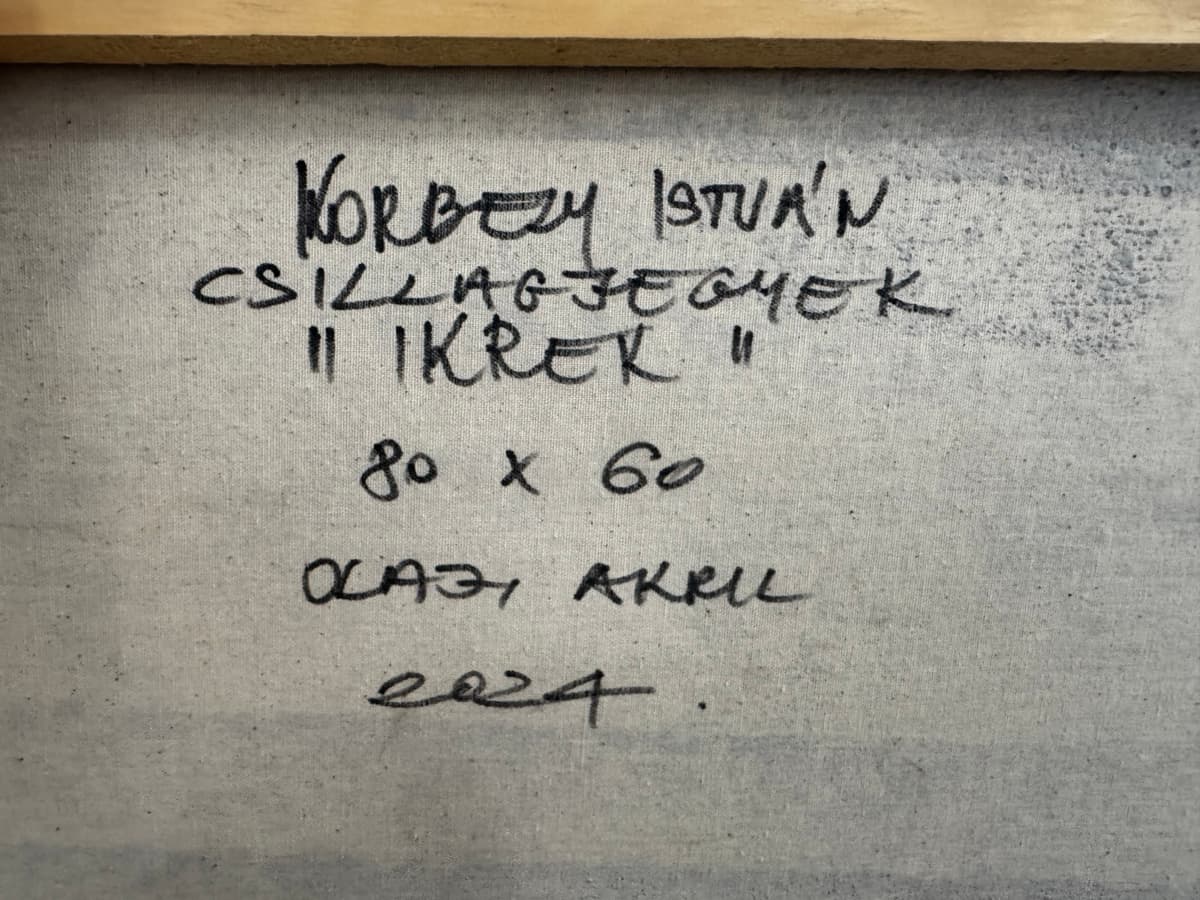 KORBELY ISTVÁN
CSILLAGJEGYEK
" IKREK "
80 X 60
OLAJ, AKRIL
2024.